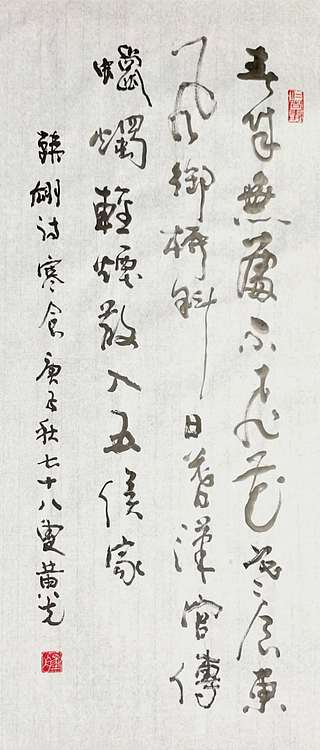 春城無處不飛花寒食東
風御柳斜日暮漢宮傳
蠟燭輕煙散入五侯家
韓翃诗寒食庚子秋七十八叟黃光